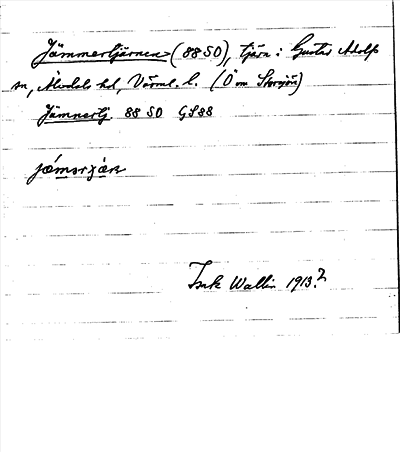 Jämmertjärnen (88 SO), tjärn i Gustav Adolfs
sn, Älvdals hd, Värml. l. (Ö om Storsjön)
Jämnertj 88 SO GS88
Isak Wallin 1913?